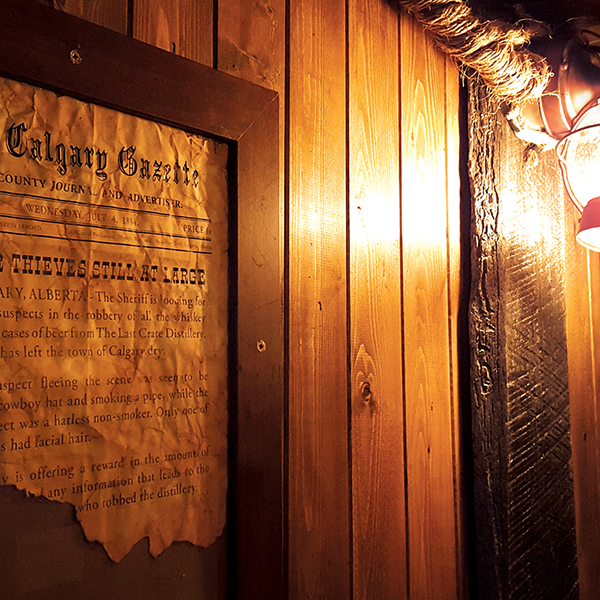 Calgary Gazette
COUNTY JOURNAL AND ADVERTISER.
WEDNESDAY, JULY 4, 1834. PRICE
THIEVES STILL AT LARGE
ARY, ALBERTA - The Sheriff is looking for
suspects in the robbery of all the whiskey
cases of beer from The Last Crate Distillery.
has left the town of Calgary dry.
spect fleeing the scene was seen to be
cowboy hat and smoking a pipe, while the
ect was a hatless non-smoker. Only one of
s had facial hair.
y is offering a reward in the amount of
any information that leads to the
who robbed the distillery.